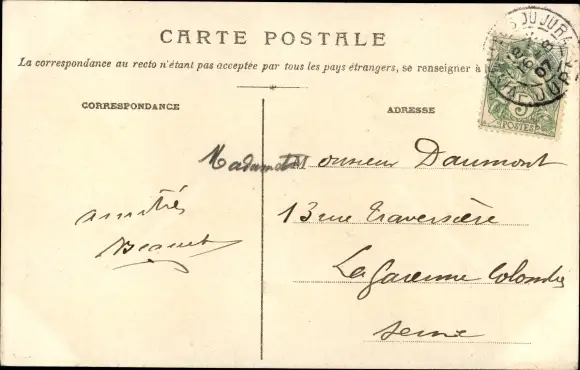 CARTE POSTALE
La correspondance au recto n'étant pas acceptée par tous les pays étrangers, se renseigner à
CORRESPONDANCE
ADRESSE
DU JURA
07
JURA
5
POSTES
Madame et Monsieur Daumont
13 rue Traversière
La Garenne Colombes
Seine
amitiés